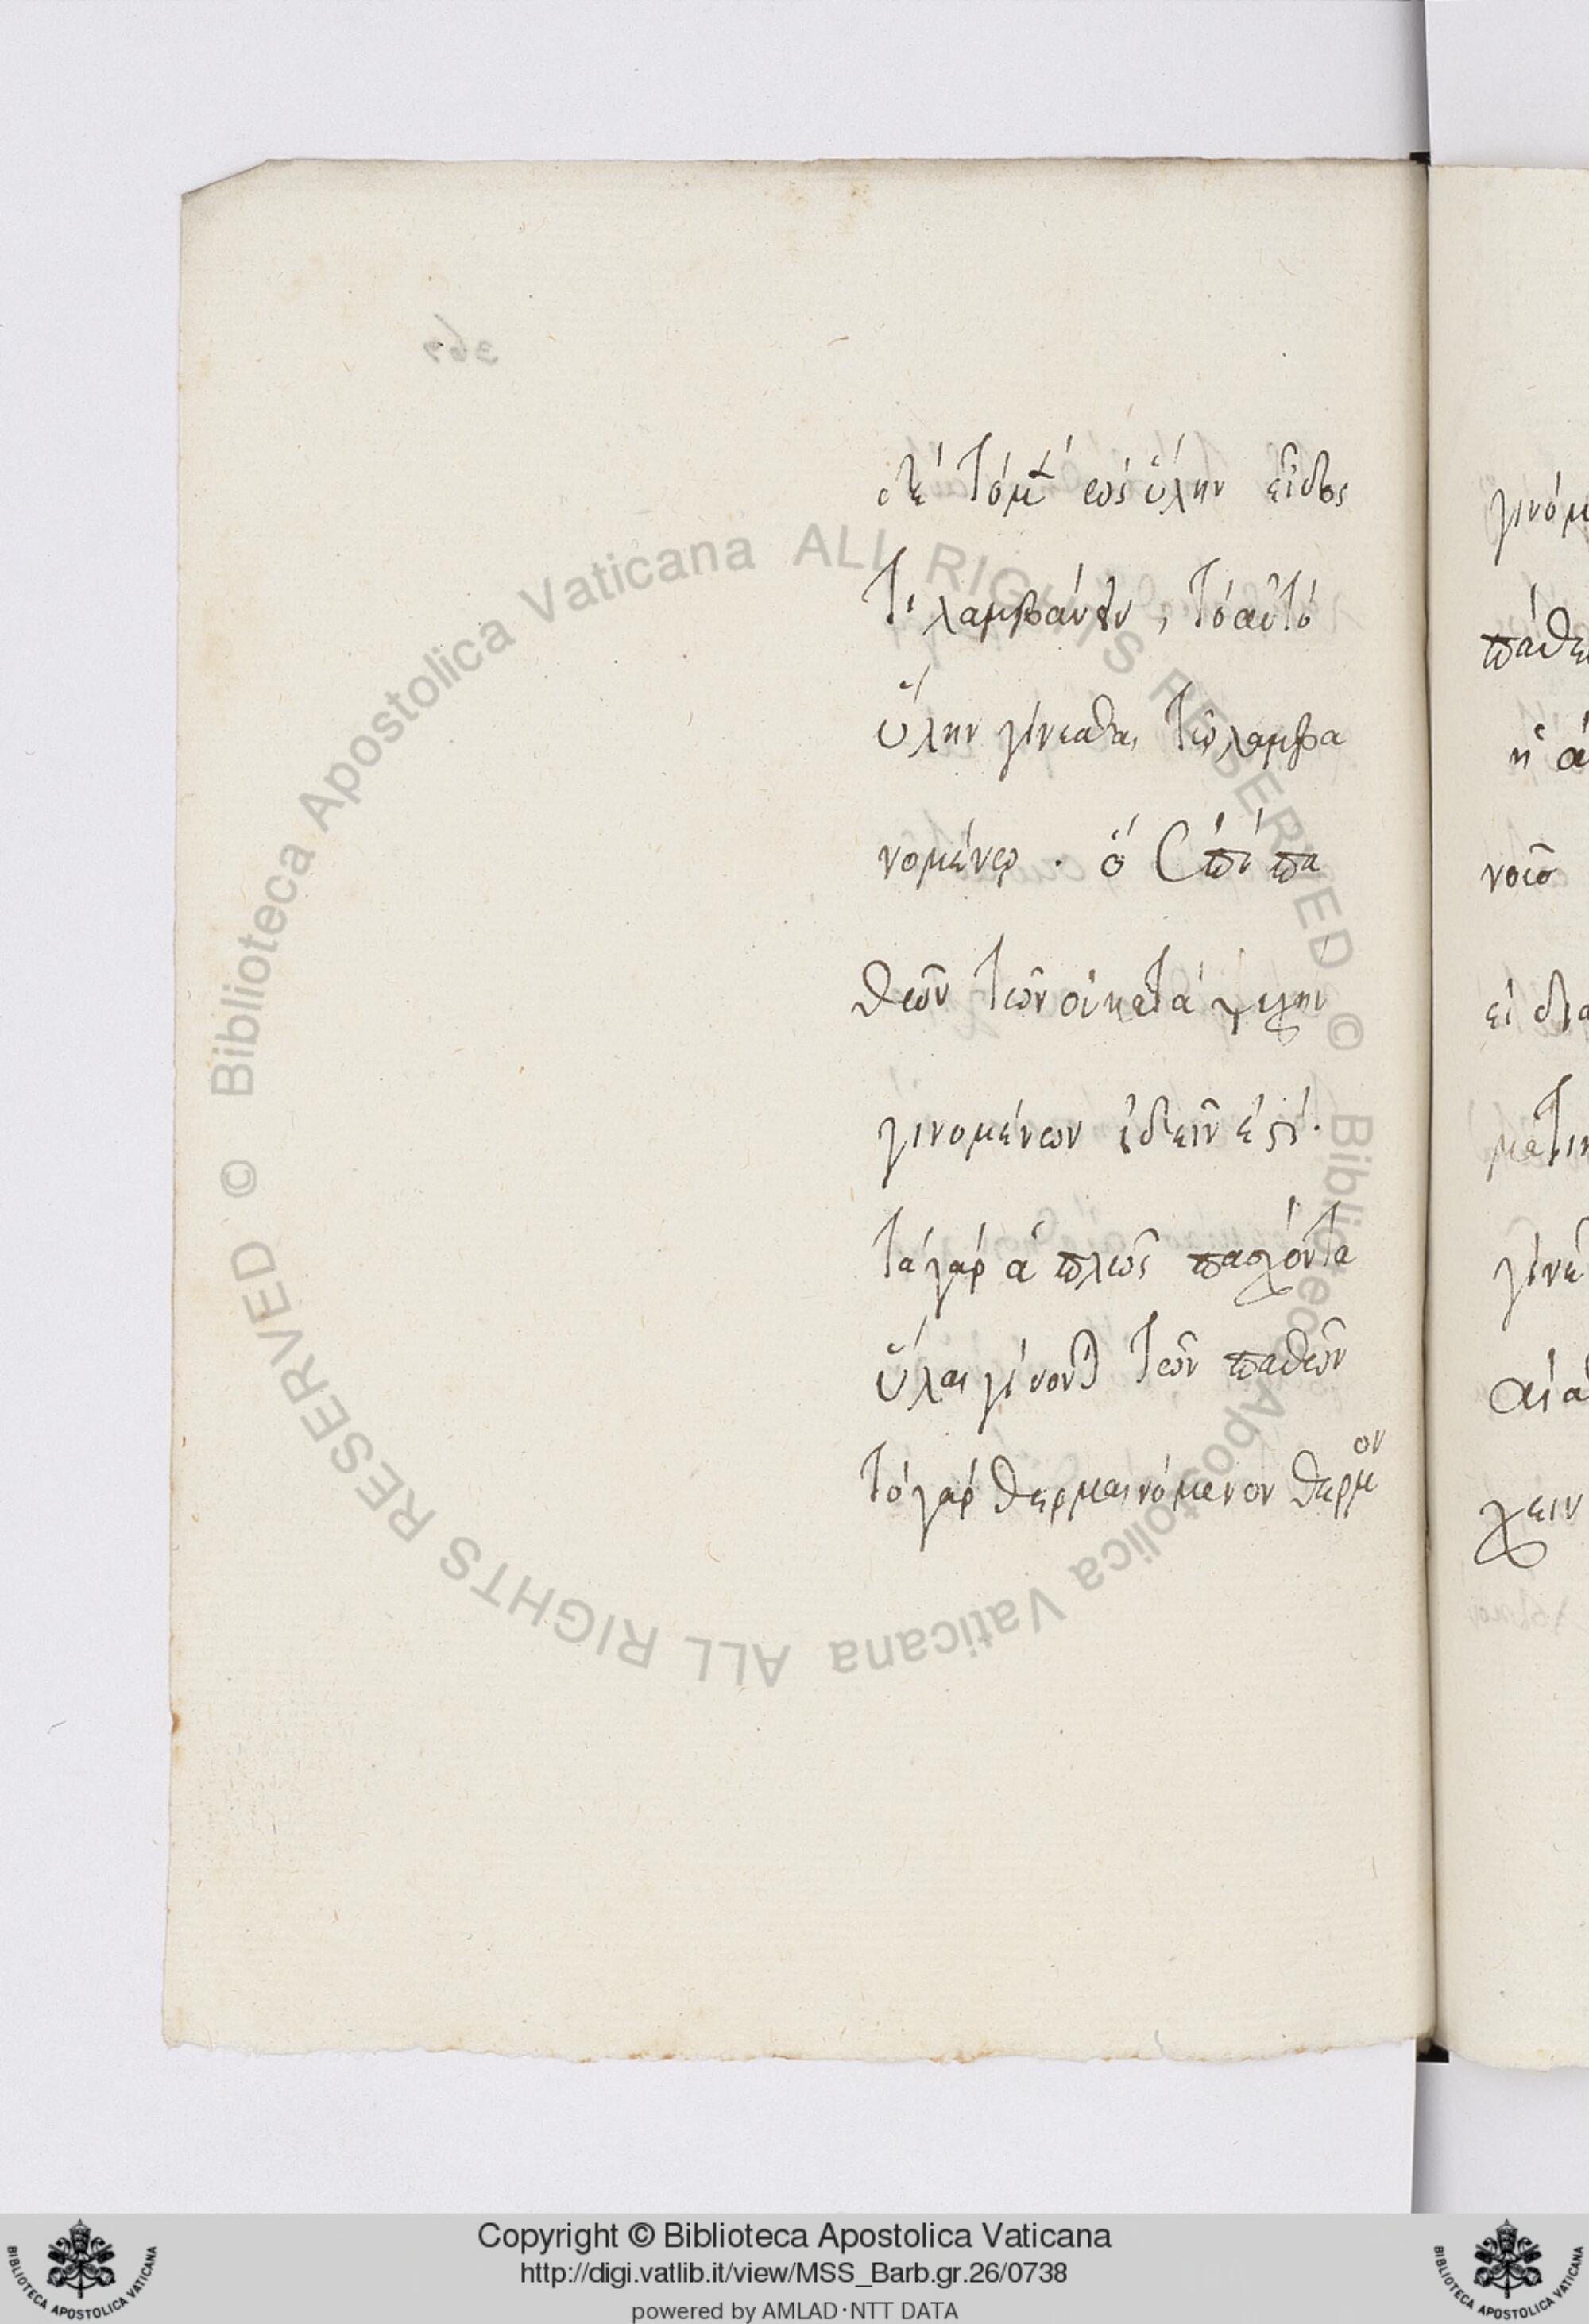 δὲ τὸ μὲν ὡς ὕλην εἶδός
τι λαμβάνειν, τὸ αὐτὸ
ὕλην γίνεσθαι τῷ λαμβα
νομένῳ · ὃ ἐπὶ πα
θῶν τῶν οὐ κατὰ ψυχὴν
γινομένων ἰδεῖν ἐστί·
τὰ γὰρ ἁπλῶς πάσχοντα
ὕλαι γίνονται τῶν παθῶν
τὸ γὰρ θερμαινόμενον θερμὸν
γινόμ
πάθει
ἢ
νοισ
εἰ δια
ματικ
γίνε
αἰσ
χειν
© Biblioteca Apostolica Vaticana ALL RIGHTS RESERVED © Biblioteca Apostolica Vaticana ALL RIGHTS RESERVED
Copyright © Biblioteca Apostolica Vaticana
http://digi.vatlib.it/view/MSS_Barb.gr.26/0738
powered by AMLAD·NTT DATA
BIBLIOTECA APOSTOLICA VATICANA
BIBLIOTECA APOSTOLICA VATICANA